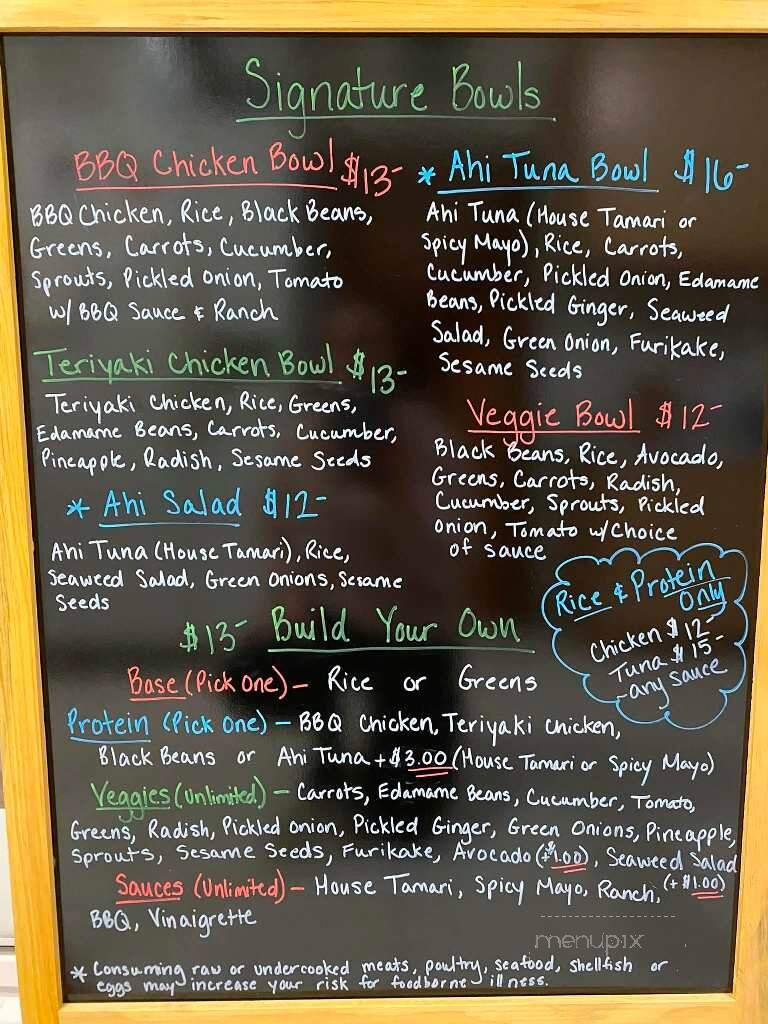 Signature Bowls
BBQ Chicken Bowl $13-
BBQ Chicken, Rice, Black Beans,
Greens, Carrots, Cucumber,
Sprouts, Pickled Onion, Tomato
w/ BBQ Sauce & Ranch
Teriyaki Chicken Bowl $13-
Teriyaki Chicken, Rice, Greens,
Edamame Beans, Carrots, Cucumber,
Pineapple, Radish, Sesame Seeds
* Ahi Salad $12-
Ahi Tuna (House Tamari), Rice,
Seaweed Salad, Green Onions, Sesame
Seeds
* Ahi Tuna Bowl $16-
Ahi Tuna (House Tamari or
Spicy Mayo), Rice, Carrots,
Cucumber, Pickled Onion, Edamame
Beans, Pickled Ginger, Seaweed
Salad, Green Onion, Furikake,
Sesame Seeds
Veggie Bowl $12-
Black Beans, Rice, Avocado,
Greens, Carrots, Radish,
Cucumber, Sprouts, Pickled
Onion, Tomato w/Choice
of sauce
Rice & Protein
Only
Chicken $12-
Tuna $15-
-any sauce
$13- Build Your Own
Base (Pick One) - Rice or Greens
Protein (Pick One) - BBQ Chicken, Teriyaki Chicken,
Black Beans or Ahi Tuna +$3.00 (House Tamari or Spicy Mayo)
Veggies (Unlimited) - Carrots, Edamame Beans, Cucumber, Tomato,
Greens, Radish, Pickled Onion, Pickled Ginger, Green Onions, Pineapple,
Sprouts, Sesame Seeds, Furikake, Avocado (+$1.00), Seaweed Salad
(+$1.00)
Sauces (Unlimited) - House Tamari, Spicy Mayo, Ranch,
BBQ, Vinaigrette
menupix
* Consuming raw or undercooked meats, poultry, seafood, shellfish or
eggs may increase your risk for foodborne illness.